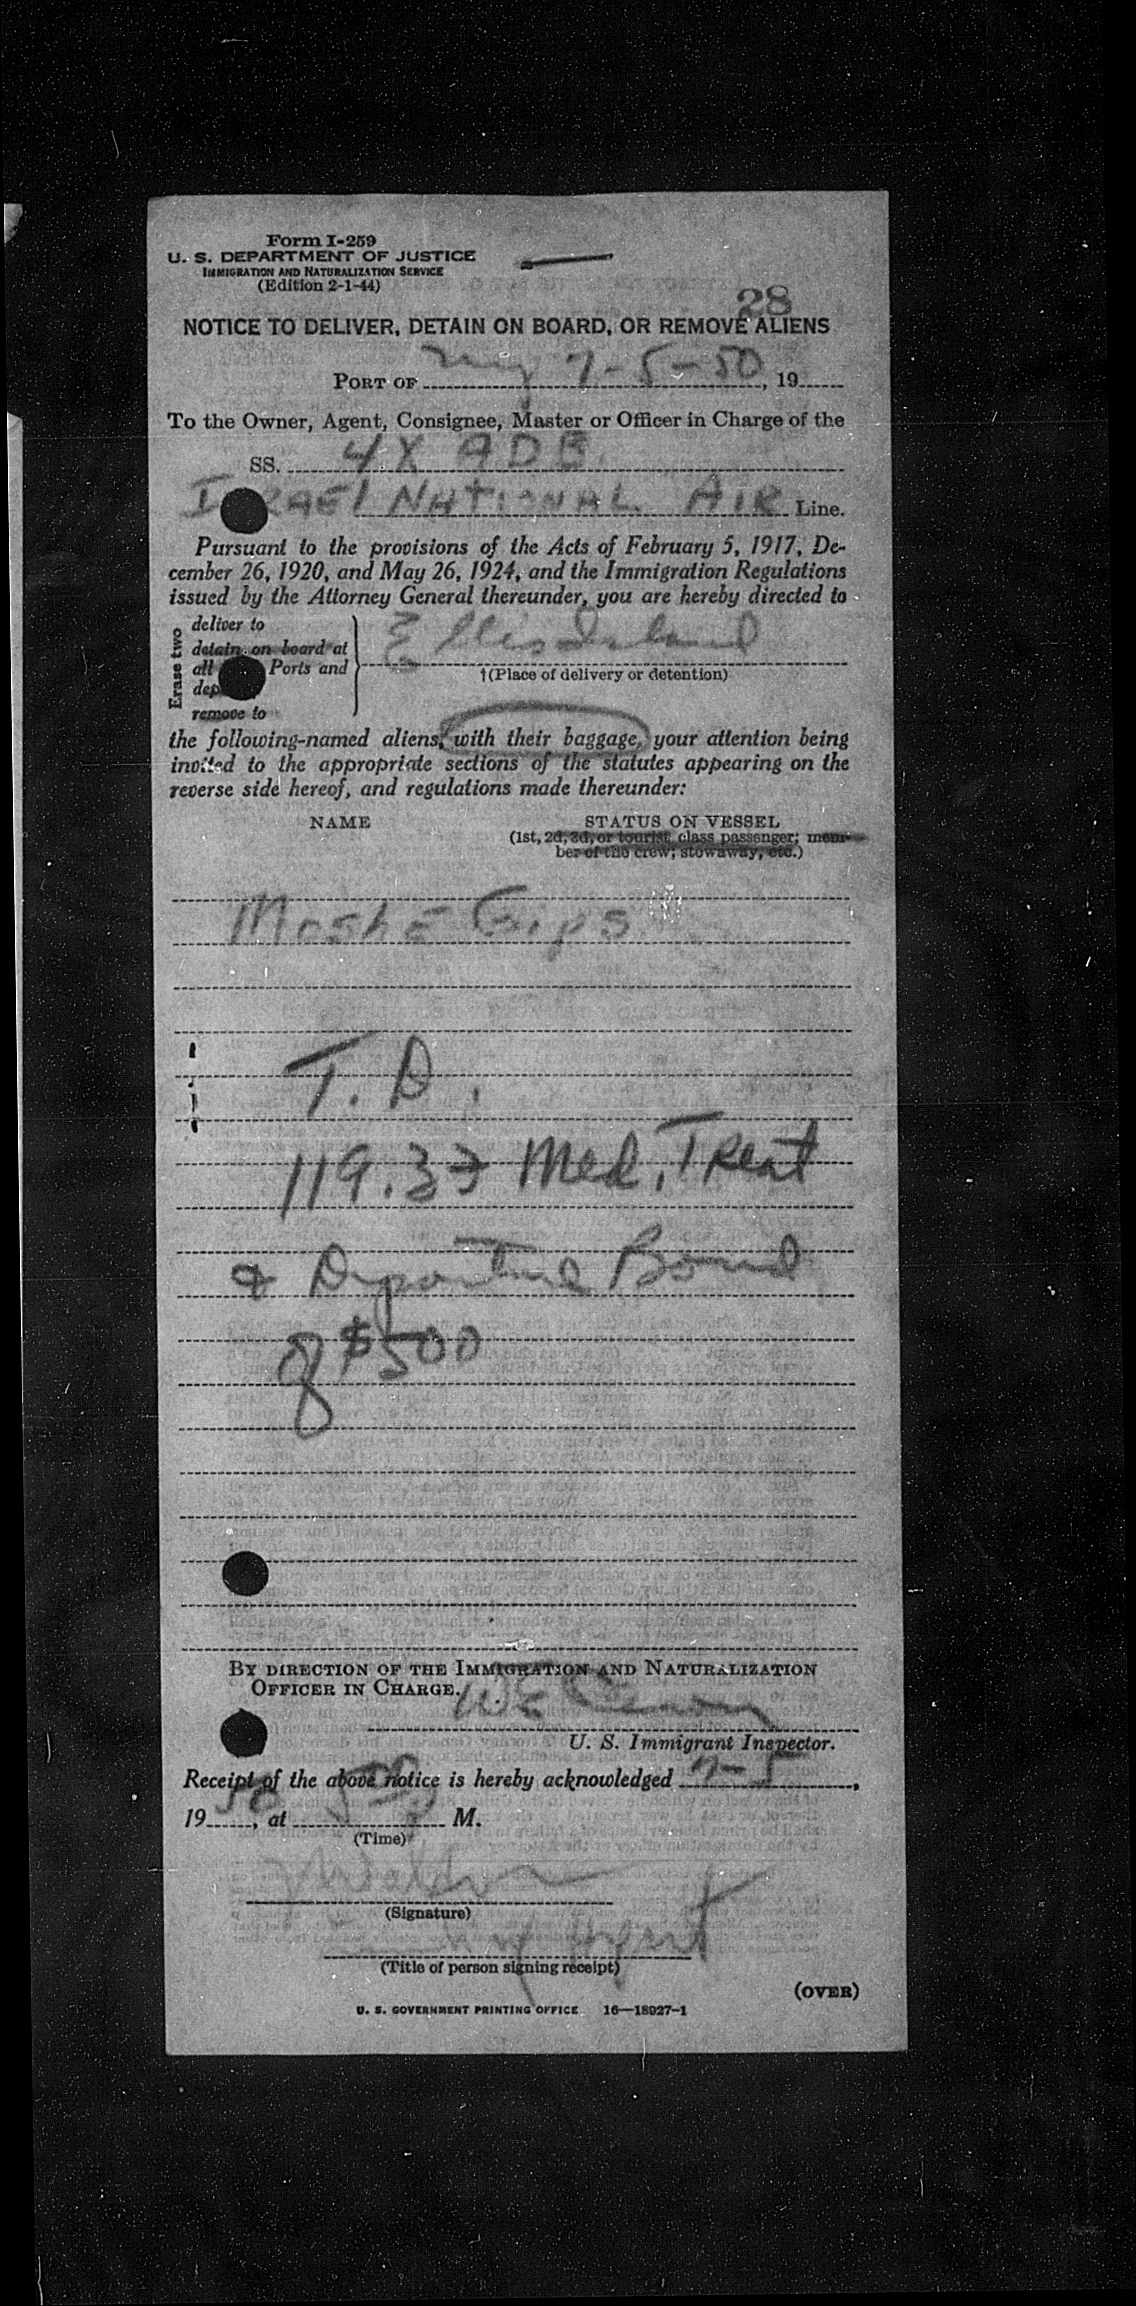 Form I-259
U. S. DEPARTMENT OF JUSTICE
IMMIGRATION AND NATURALIZATION SERVICE
(Edition 2-1-44)
28
NOTICE TO DELIVER, DETAIN ON BOARD, OR REMOVE ALIENS
PORT OF NY 7-5-50, 19
To the Owner, Agent, Consignee, Master or Officer in Charge of the
SS. 4X ADB
ISRAEL NATIONAL AIR Line.
Pursuant to the provisions of the Acts of February 5, 1917, De-
cember 26, 1920, and May 26, 1924, and the Immigration Regulations
issued by the Attorney General thereunder, you are hereby directed to
Erase two
deliver to
detain on board at
all Ports and
remove to
Ellis Island
†(Place of delivery or detention)
the following-named aliens, with their baggage, your attention being
invited to the appropriate sections of the statutes appearing on the
reverse side hereof, and regulations made thereunder:
NAME STATUS ON VESSEL
(1st, 2d, 3d, or tourist class passenger; mem-
ber of the crew; stowaway, etc.)
Moshe Gips
T. D.
119.33 Med. Treat
& Departure Bond
of $500
BY DIRECTION OF THE IMMIGRATION AND NATURALIZATION
OFFICER IN CHARGE.
U. S. Immigrant Inspector.
Receipt of the above notice is hereby acknowledged 7-5,
19 50, at M.
(Time)
(Signature)
Agent
(Title of person signing receipt)
(OVER)
U. S. GOVERNMENT PRINTING OFFICE 16—18927-1